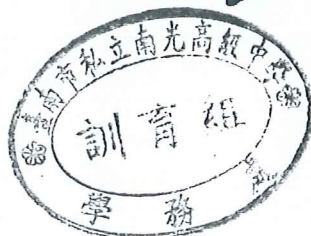 臺南市私立南光高級中學
訓育組
學務處